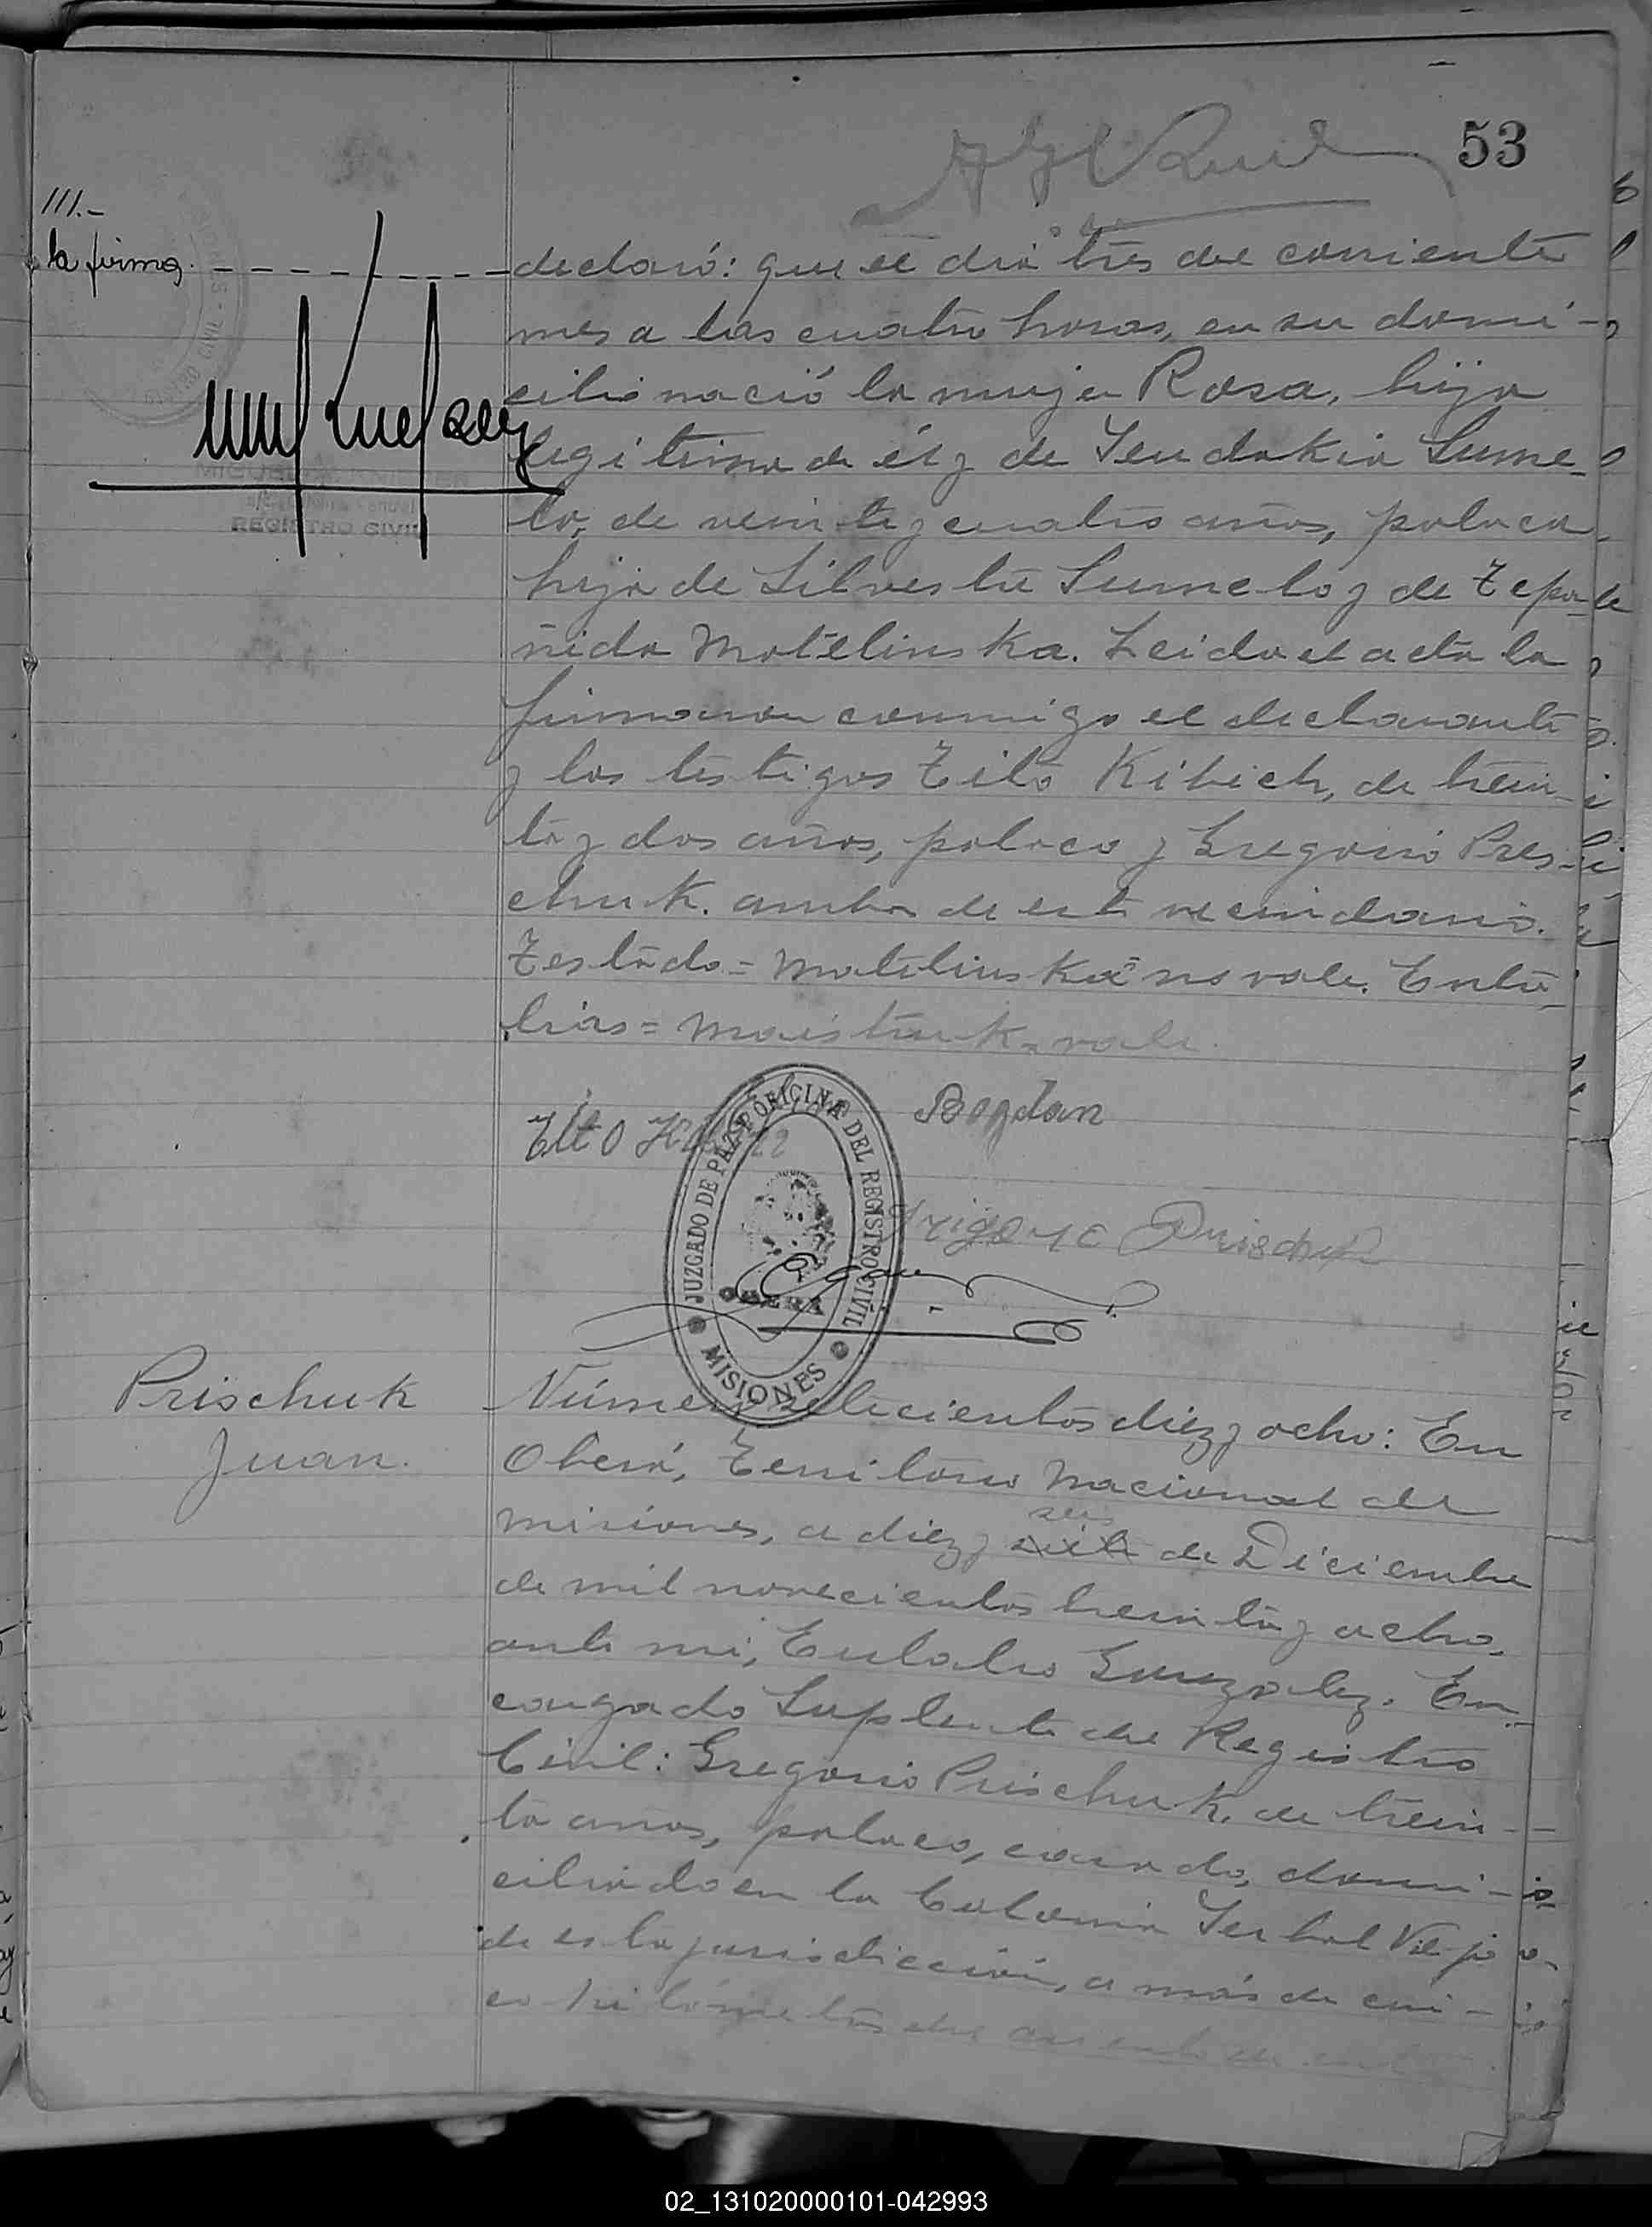 53
III.-
la firma.
declaró: que el dia tres del corriente
mes a las cuatro horas, en su domi-
cilio nació la mujer Rosa, hija
legitima de él y de Yeudokia Sume-
lo, de veinte y cuatro años, polaca,
hija de Silvestre Sumelo y de
Motelinska. Leida el acta la
firmaron conmigo el declarante
y los testigos Tito Kibich, de trein-
ta y dos años, polaco y Gregorio Pris-
chuk. ambos de este vecindario.
Testado = Matelinska no vale. Entre
lias = vale.
REGISTRO CIVIL
Bogdan
Tito
JUZGADO DE PAZ Y OFICINA DEL REGISTRO CIVIL
OBERA
MISIONES
Prischuk
Juan.
Número setecientos diez y ocho: En
Oberá, Territorio Nacional de
seis
Misiones, a diez y siete de Diciembre
de mil novecientos treinta y ocho,
ante mi, Eulalio Gonzalez. En-
cargado Suplente del Registro
Civil: Gregorio Prischuk, de trein-
ta años, polaco, casado, domi-
ciliado en la Colonia Yerbal Viejo
de esta jurisdicción, a más de cin-
co kilómetros del asiento de
02_131020000101-042993